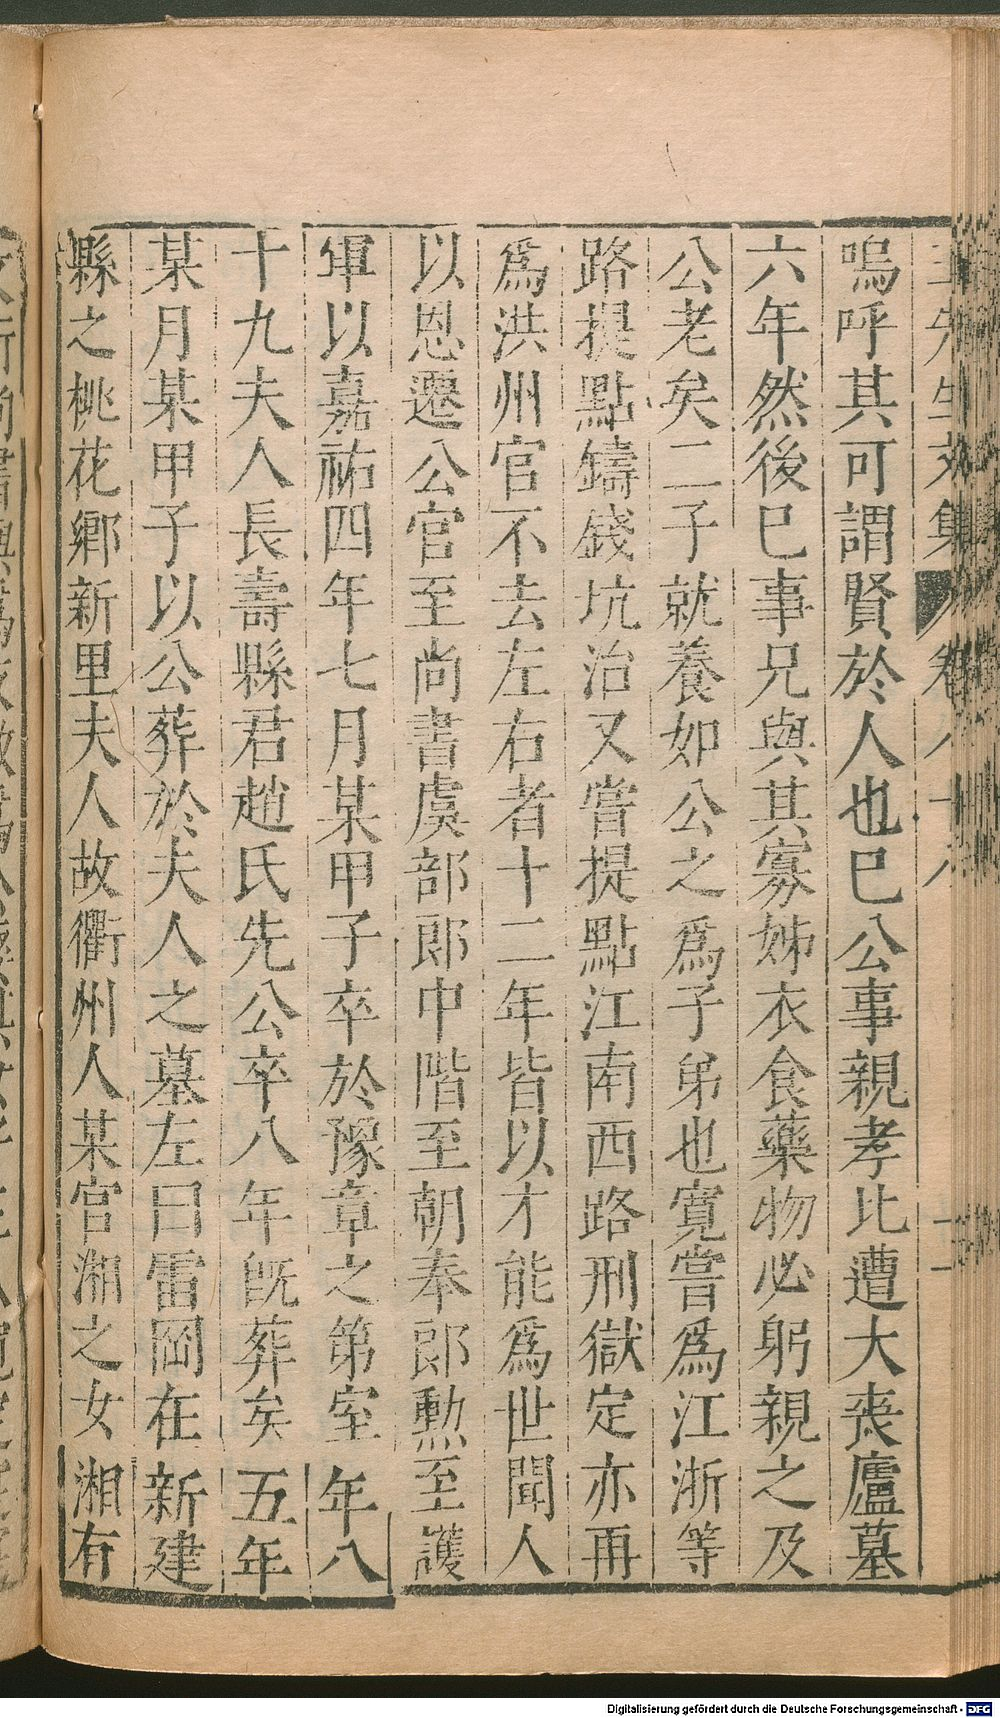 王先生文集 卷八十八 二
嗚呼其可謂賢於人也巳公事親孝比遭大喪廬墓
六年然後巳事兄與其寡姊衣食藥物必躬親之及
公老矣二子就養如公之爲子弟也寬嘗爲江浙等
路提點鑄錢坑治又嘗提點江南西路刑獄定亦再
爲洪州官不去左右者十二年皆以才能爲世聞人
以恩遷公官至尚書虞部郎中階至朝奉郎勲至護
軍以嘉祐四年七月某甲子卒於豫章之第室年八
十九夫人長壽縣君趙氏先公卒八年旣葬矣五年
某月某甲子以公葬於夫人之墓左曰雷岡在新建
縣之桃花鄉新里夫人故衢州人某官湘之女湘有
Digitalisierung gefördert durch die Deutsche Forschungsgemeinschaft - DFG